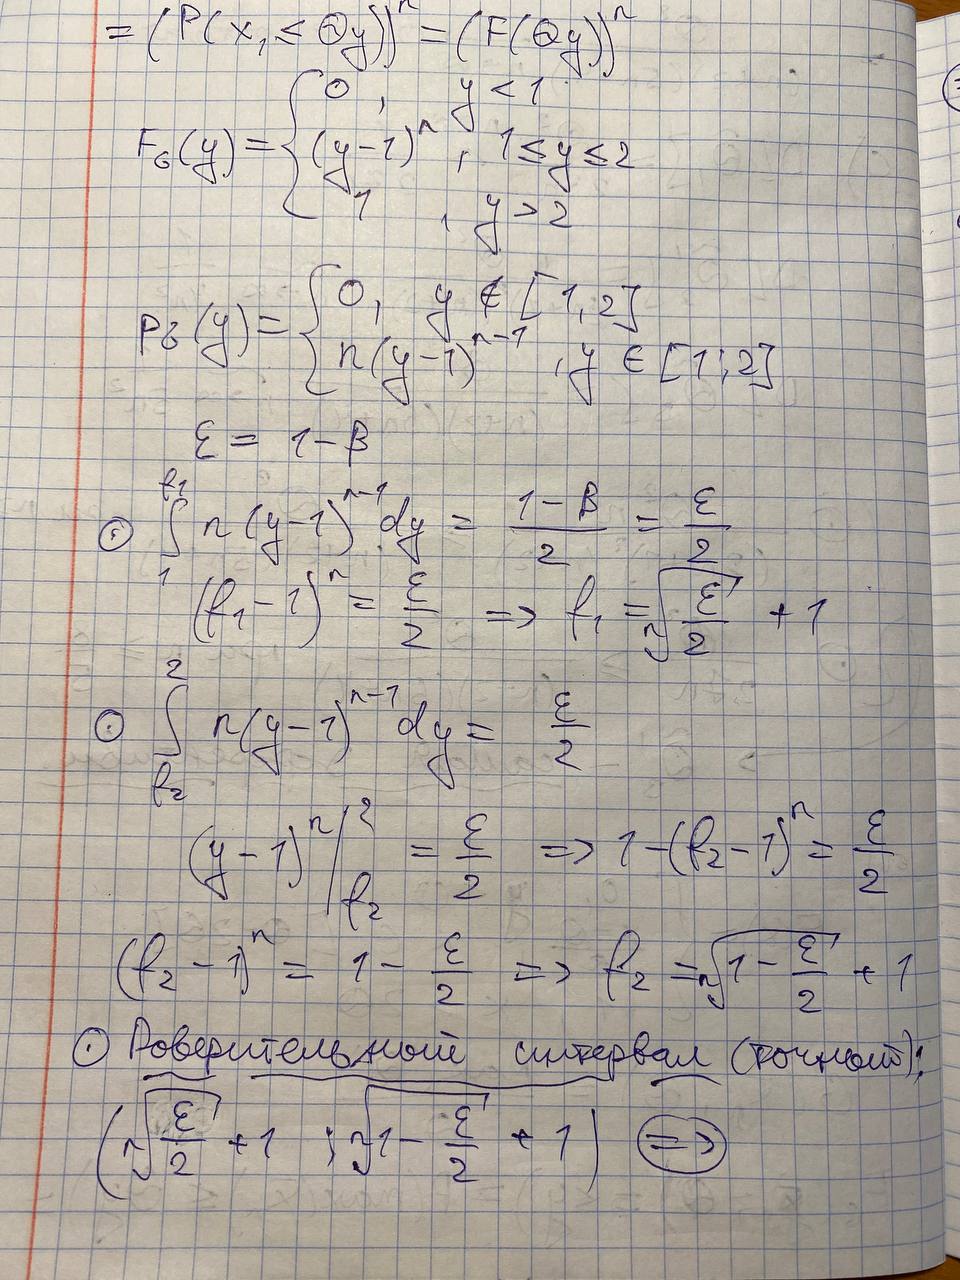 = (P(x₁ ≤ Θy))ⁿ = (F(Θy))ⁿ
F_б(y) = { 0, y < 1
(y-1)ⁿ, 1 ≤ y ≤ 2
1, y > 2
p_б(y) = { 0, y ∉ [1,2]
n(y-1)ⁿ⁻¹, y ∈ [1;2]
ε = 1-β
⊙ ∫₁^{f₁} n(y-1)ⁿ⁻¹dy = (1-β)/2 = ε/2
(f₁-1)ⁿ = ε/2 => f₁ = ⁿ√(ε/2) + 1
⊙ ∫_{f₂}² n(y-1)ⁿ⁻¹dy = ε/2
(y-1)ⁿ |_{f₂}² = ε/2 => 1-(f₂-1)ⁿ = ε/2
(f₂-1)ⁿ = 1-ε/2 => f₂ = ⁿ√(1-ε/2) + 1
⊙ Доверительный интервал (точный):
(ⁿ√(ε/2) + 1 ; ⁿ√(1-ε/2) + 1) =>